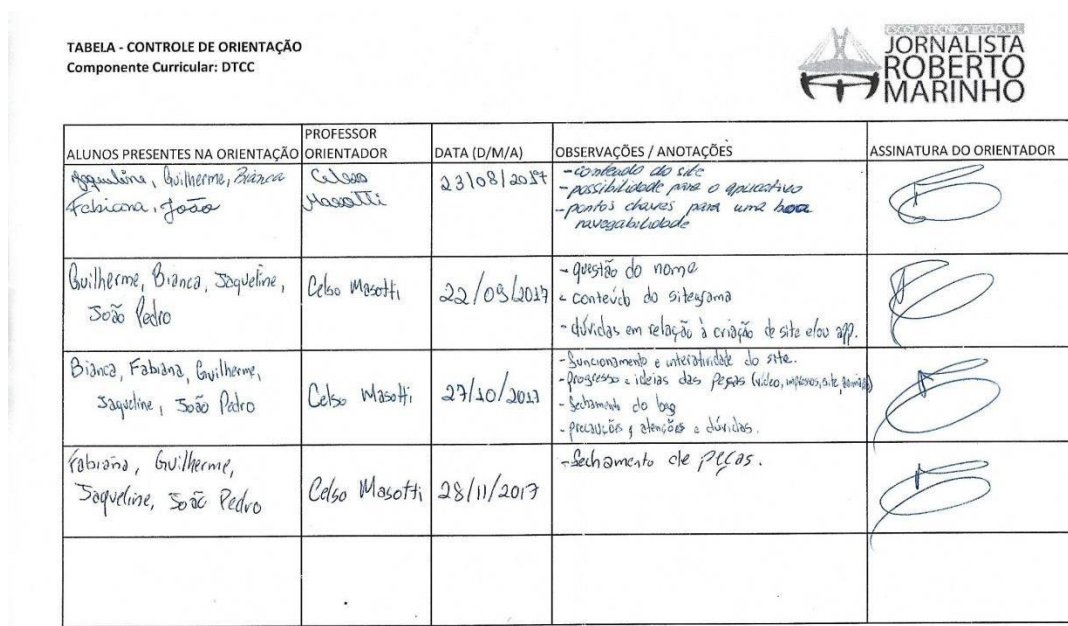 TABELA - CONTROLE DE ORIENTAÇÃO
Componente Curricular: DTCC
ESCOLA TÉCNICA ESTADUAL
JORNALISTA
ROBERTO
MARINHO
ALUNOS PRESENTES NA ORIENTAÇÃO
PROFESSOR
ORIENTADOR
DATA (D/M/A)
OBSERVAÇÕES / ANOTAÇÕES
ASSINATURA DO ORIENTADOR
Jaqueline, Guilherme, Bianca
Fabiana, João
Celso
Masotti
23/08/2017
- conteúdo do site
- possibilidade para o aplicativo
- pontos chaves para uma boa
navegabilidade
Guilherme, Bianca, Jaqueline,
João Pedro
Celso Masotti
22/09/2017
- questão do nome
- conteúdo do
- dúvidas em relação à criação de site e/ou app.
Bianca, Fabiana, Guilherme,
Jaqueline, João Pedro
Celso Masotti
27/10/2017
- funcionamento e interatividade do site.
- progresso e ideias das peças (vídeo, impressos, site
- fechamento do
- precauções, atenções e dúvidas.
Fabiana, Guilherme,
Jaqueline, João Pedro
Celso Masotti
28/11/2017
- fechamento de peças.